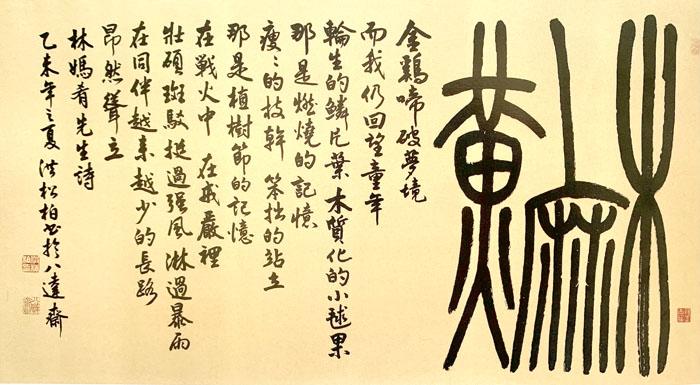 木麻黃
金鷄啼破夢境
而我仍回望童年
輪生的鱗片葉 木質化的小毬果
那是燃燒的記憶
瘦〻的枝幹 笨拙的站立
那是植樹節的記憶
在戰火中 在戒嚴裡
壯碩斑駁挺過强風淋過暴雨
在同伴越來越少的長路
昂然聳立
林媽肴先生詩
乙未年之夏 洪松柏書於八達齋